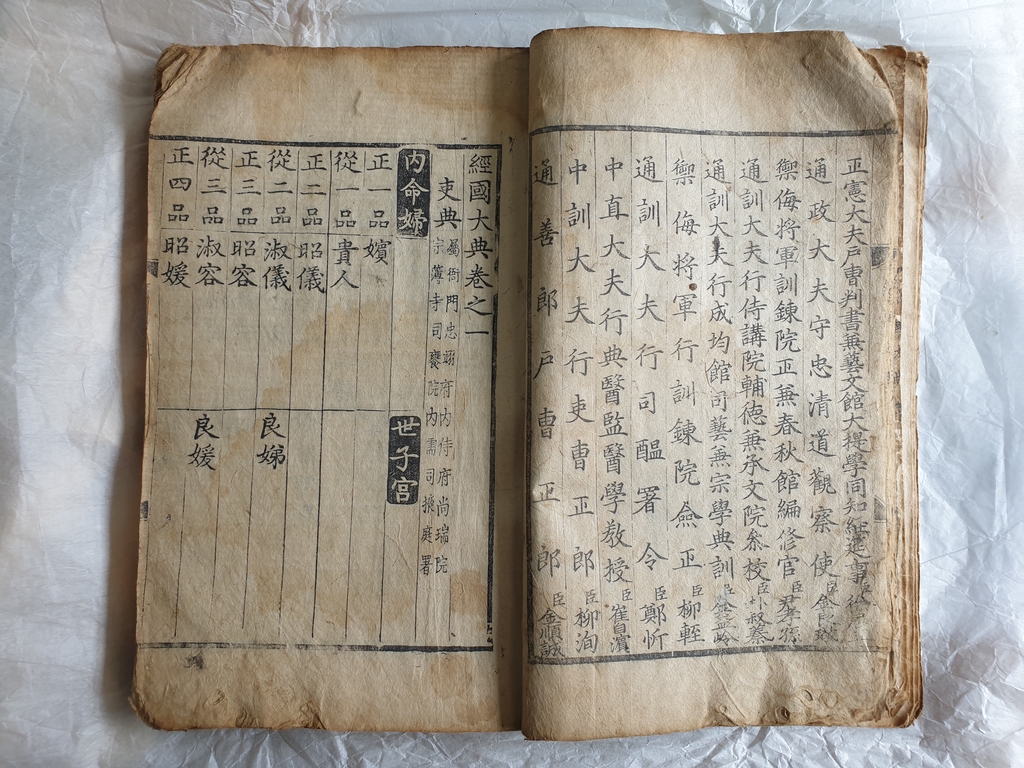 正憲大夫戶曹判書兼藝文館大提學同知經筵事
通政大夫守忠清道觀察使臣金良璥
禦侮將軍訓鍊院正兼春秋館編修官臣尹孝孫
通訓大夫行侍講院輔德兼承文院叅校臣
通訓大夫行成均館司藝兼宗學典訓臣金
禦侮將軍行訓鍊院僉正臣柳輊
通訓大夫行司醞署令臣鄭忻
中直大夫行典醫監醫學敎授臣崔自濱
中訓大夫行吏曺正郎臣柳洵
通善郎戶曺正郎臣金順誠
經國大典卷之一
吏典 屬衙門忠翊府內侍府尚瑞院
宗簿寺司饔院內需司掖庭署
內命婦 世子宮
正一品 嬪
從一品 貴人
正二品 昭儀
從二品 淑儀 良娣
正三品 昭容
從三品 淑容 良媛
正四品 昭媛